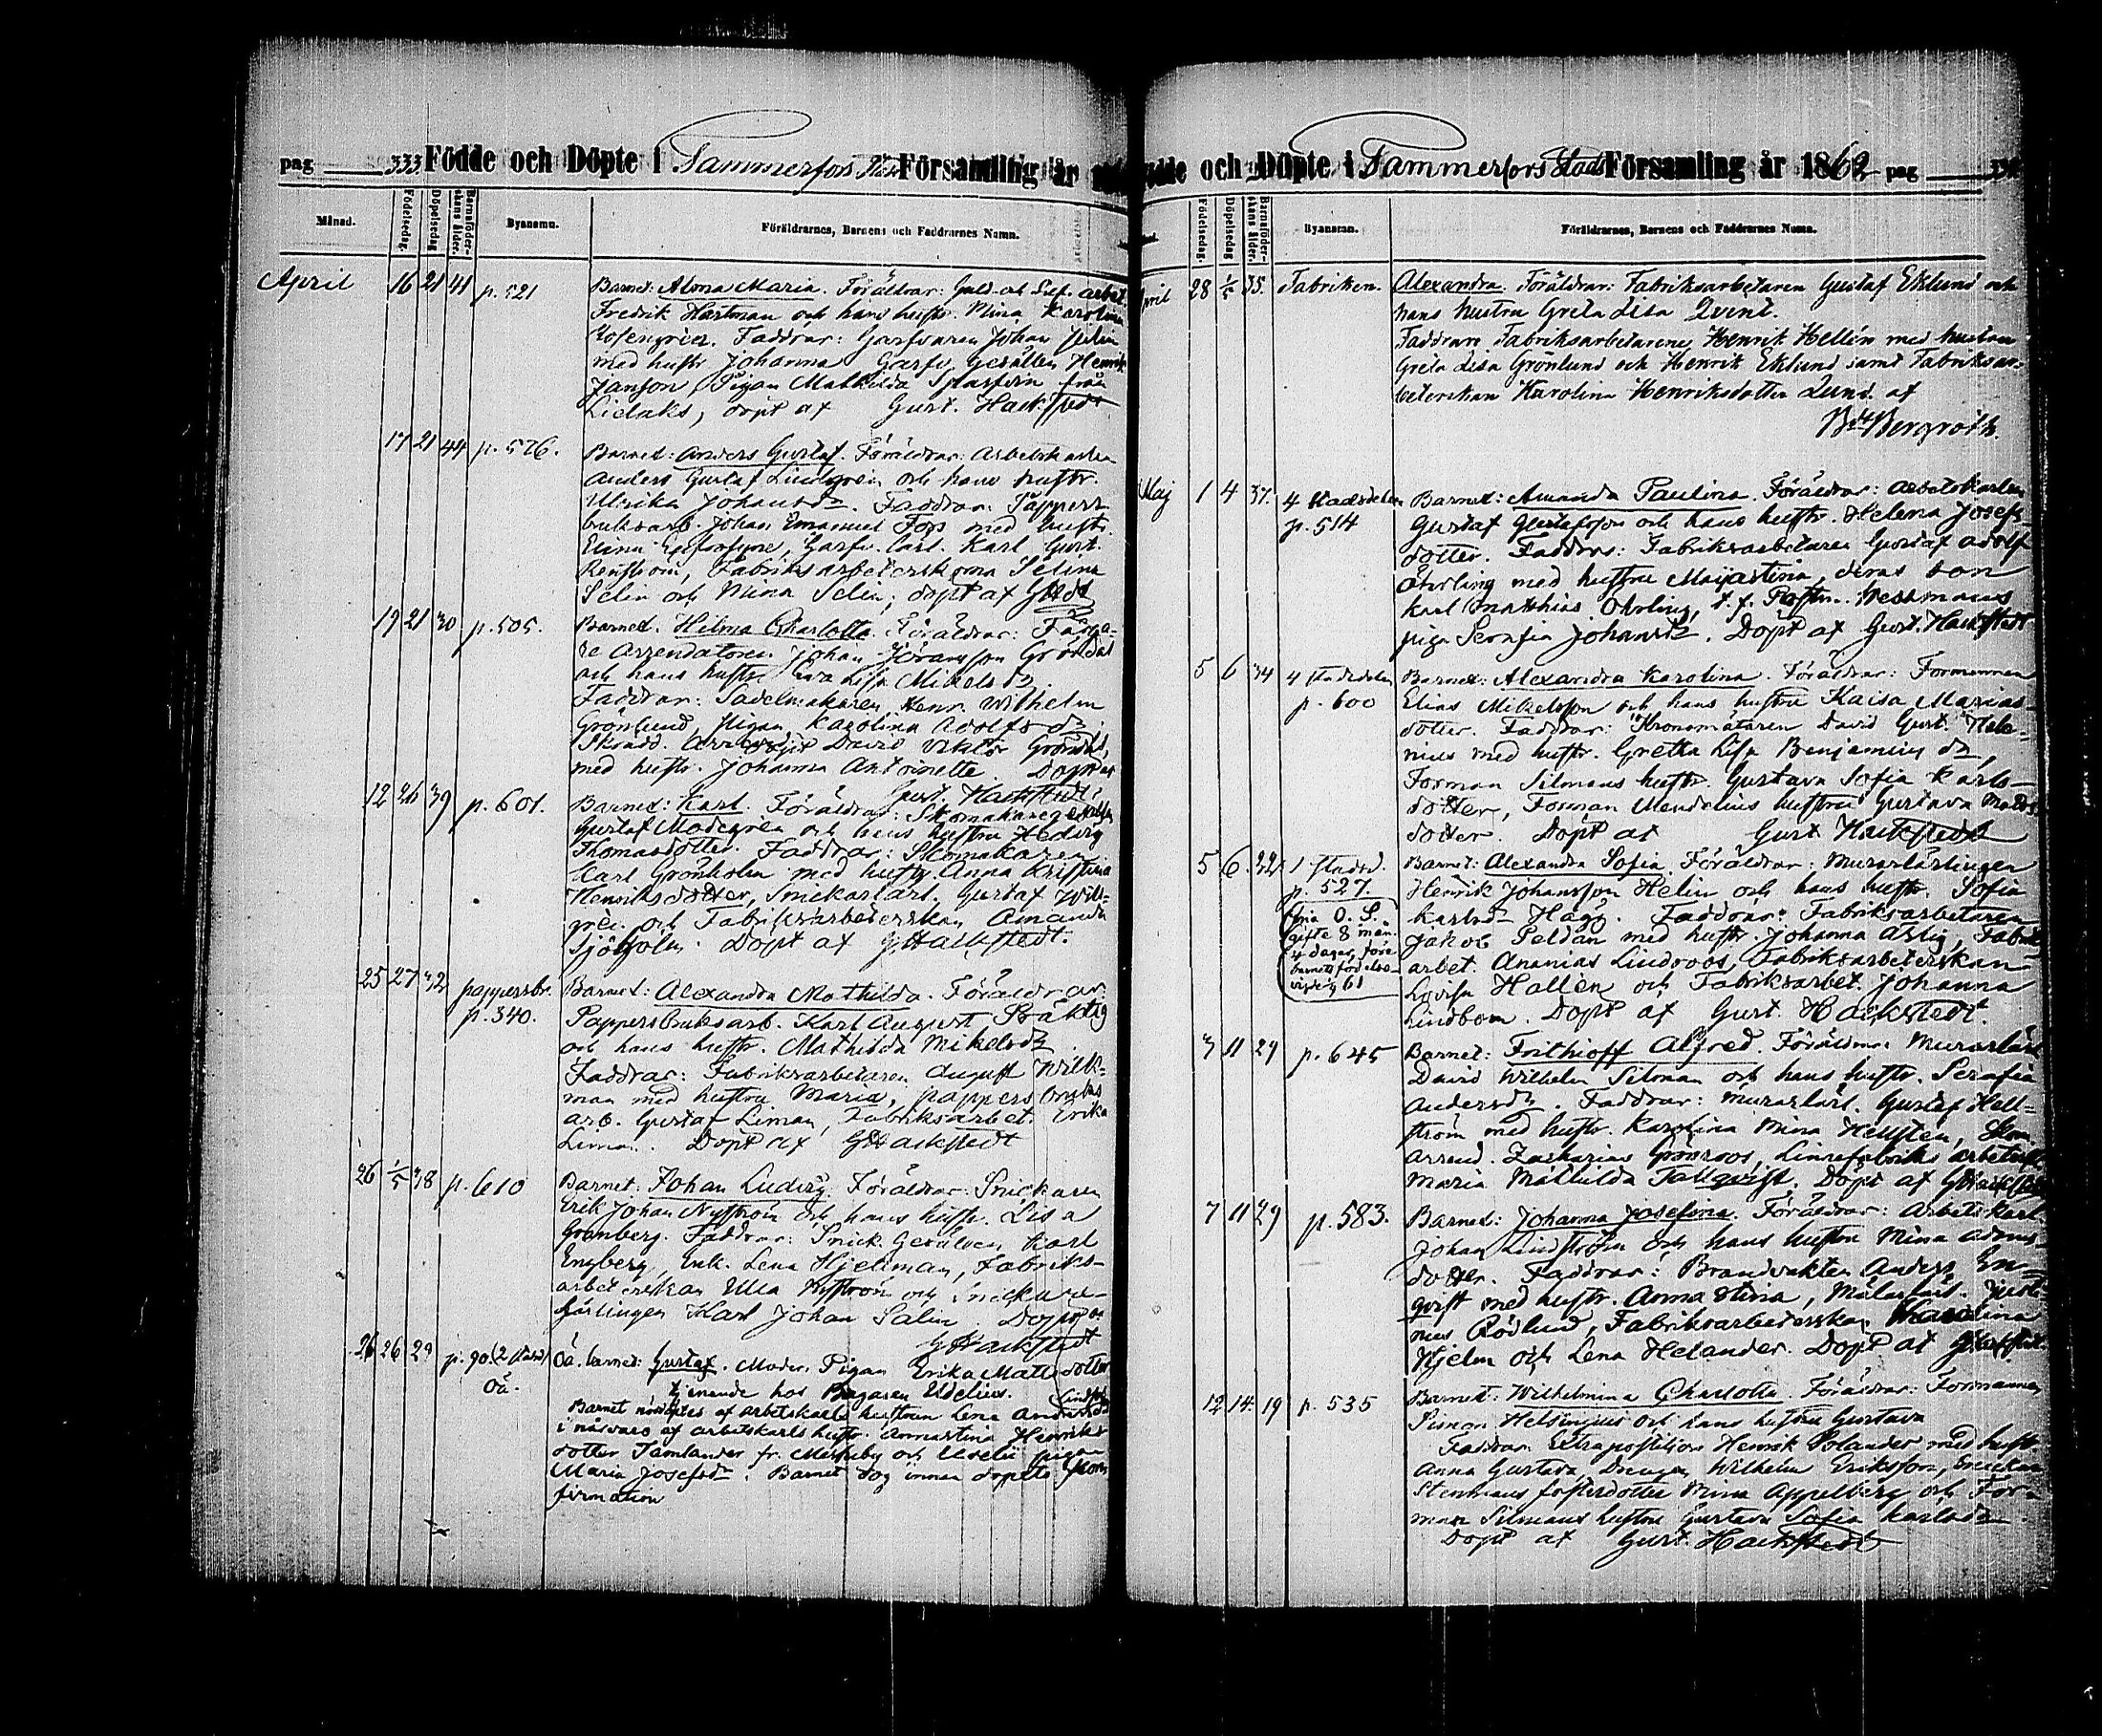 pag 333 Födde och Döpte i Tammerfors Församling år
Månad. Födelsedag. Döpelsedag Barnaföder-skans ålder. Byanamn. Föräldrarnes, Barnens och Faddrarnes Namn.
April 16 21 41 p. 521 Barnet: Alma Maria. Föräldrar: arbet.
Fredrik Hartman och hans hustr. Mina Karolina
Faddrar: Garfvaren Johan
med hustr Johanna Garfv. gesällen Henrik
Janson, Pigan Mathilda från
döpt af Gust. Hackstedt
17 21 44 p. 576. Barnet: Anders Gustaf. Föräldrar: Arbetskarlen
Anders Gustaf Lindgren och hans hustr.
Ulrika Johansdr. Faddrar: Pappers
bruksarb. Johan Emanuel Fors med hustr.
Garfv. lärl. Karl Gust.
Renstrom, Fabriksarbeterskorna Selina
Selin och Mina Selin; döpt af GHdt
19 21 30 p. 505. Barnet. Hilma Charlotta. Föräldrar:
Arrendatoren Johan Göransson Gröndal
och hans hustr. Eva Lisa Mikelsdr.
Faddrar: Sadelmakaren Henr. Wilhelm
Grönlund, Pigan Karolina Adolfsdr.
David Viktor Gröndal,
med hustr. Johanna Antoinette. Döpt af
Gust. Hackstedt
12 26 39 p. 601. Barnet: Karl. Föräldrar: Skomakaregesällen
Gustaf Modegren och hans hustru Hedvig
Thomasdotter. Faddrar: Skomakaren
Karl Grönholm med hustr. Anna Kristina
Henriksdotter, Snickarlärl. Gustaf Will-
gren och Fabriksarbeterskan Amanda
Sjöholm. Döpt af GHackstedt.
25 27 32 pappersbr. Barnet: Alexandra Mathilda. Föräldrar
p. 340. Pappersbruksarb. Karl August Präktig
och hans hustr. Mathilda Mikelsdr
Faddrar: Fabriksarbetaren August Wilk-
man med hustru Maria, pappersbruks
arb. Gustaf Liman, Fabriksarbet. Erika
Liman. Döpt af GHackstedt
26 1/5 38 p. 610 Barnet: Johan Ludvig. Föräldrar: Snickaren
Erik Johan Nyström och hans hustr. Lisa
Granberg. Faddrar: Snick. Gesällen Karl
Engberg, Enk. Lena Hjelman, Fabriks-
arbeterskan Ulla Nyström och Snickare-
lärlingen Karl Johan Salin. Döpt af
GHackstedt
26 26 29 p. 90. (2 stadsd) Oä. barnet: Gustaf. Moder. Pigan Erika Mattsdotter
Oä. tjenande hos Bagaren Edelius.
Barnet nöddöptes af arbetskarls hustrun Lena Andersdr
i närvaro af arbetskarls hustr. Annastina Henriks
dotter Tamlander fr. Messuby och pigan
Maria Josefsdr. Barnet dog innan dopets kon
firmation
Födde och Döpte i Tammerfors Stads Församling år 1862 pag 334
Födelsedag. Döpelsedag Barnaföder-skans ålder. Byanamn. Föräldrarnes, Barnens och Faddrarnes Namn.
April 28 1/5 35. Fabriken. Alexandra. Föräldrar: Fabriksarbetaren Gustaf Eklund och
hans hustru Greta Lisa Qvent.
Faddrare Fabriksarbetarene Henrik Hellén med hustru
Greta Lisa Grönlund och Henrik Eklund samt Fabriksar-
beterskan Karolina Henriksdotter Lund. af
Bergroth.
Maj 1 4 37. 4 stadsdelen Barnet: Amanda Paulina. Föräldrar: Arbetskarlen
p. 514 Gustaf Gustafsson och hans hustr. Helena Josefs
dotter. Faddrar: Fabriksarbetaren Gustaf Adolf
Öhrling med hustru Majastina, deras son
Karl Matthias Öhrling, Westmans
piga Serafia Johansdr. Döpt af Gust. Hackstedt
5 6 34 4 stadsdelen Barnet: Alexandra Karolina. Föräldrar: Formannen
p. 600 Elias Mikelsson och hans hustru Kaisa Marias
dotter. Faddrar: Kronomätaren David Gust. Hele-
nius med hustr. Gretha Lisa Benjaminsdr,
Forman Silmans hustr. Gustava Sofia Karls-
dotter, Forman Mendelius hustru Gustava Matts
dotter. Döpt af Gust Hackstedt
5 6 22 1 stadsd. Barnet: Alexandra Sofia. Föräldrar: Murarlärlingen
p. 527. Henrik Johansson Helin och hans hustr. Sofia
gifte 8 mån. Karlsdr Hägg. Faddrar: Fabriksarbetaren
4 dagar före Jakob Peldán med hustr. Johanna Fabriks
barnets födelse arbet. Ananias Lindroos, Fabriksarbeterskan
Lovisa Hallén och Fabriksarbet. Johanna
Lindbom. Döpt af Gust. Hackstedt.
7 11 29 p. 645 Barnet: Frithioff Alfred. Föräldrar: Murarlärl
David Wilhelm Silman och hans hustr. Serafia
Andersdr. Faddrar: Murarlärl. Gustaf Hell-
ström med hustr. Karolina Mina Hellsten,
Arrend. Zacharias Grönroos, Linnefabriks arbetersk.
Maria Mathilda Tallqvist. Döpt af GHackstedt
7 11 29 p. 583. Barnet: Johanna Josefina. Föräldrar: Arbetskarl.
Johan Lindström och hans hustru Mina Adams-
dotter. Faddrar: Brandvakten Anders En-
qvist med hustr. Anna Stina, Målarlärl.
Rödlund, Fabriksarbeterskan Karolina
Hjelm och Lena Helander. Döpt af GHackstedt.
12 14 19 p. 535 Barnet: Wilhelmina Charlotta. Föräldrar: Formannen
Simon Helsingius och hans hustru Gustava
Faddrar: Extrapostiljon Henrik Solander med hustr.
Anna Gustava, Drängen Wilhelm Eriksson,
Stenmans fosterdotter Mina Appelberg och For-
man Silmans hustru Gustava Sofia Karlsdr.
Döpt af Gust. Hackstedt